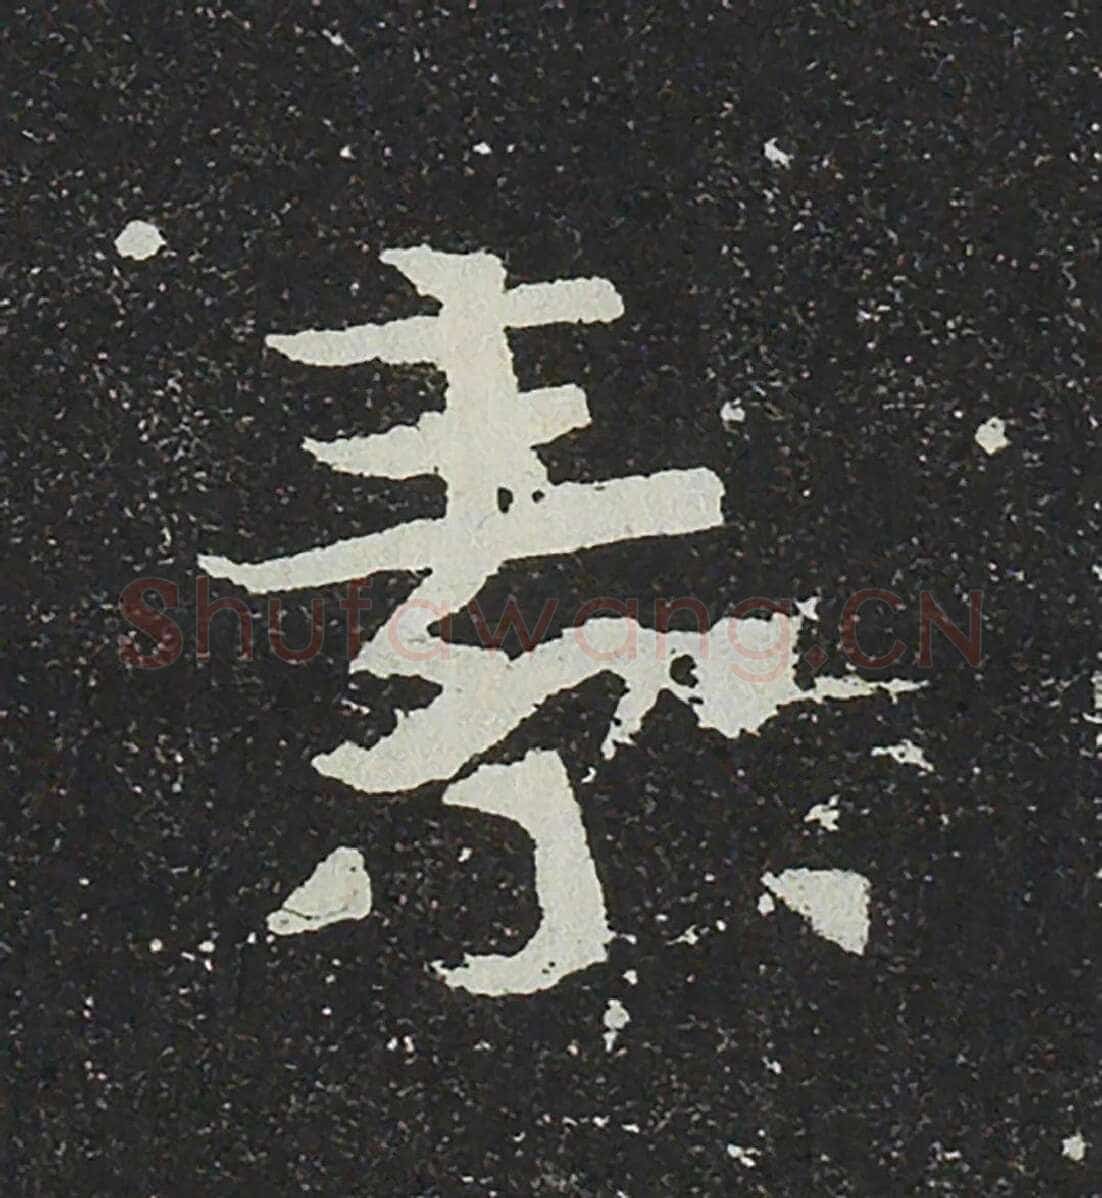 素
Shufawang.CN